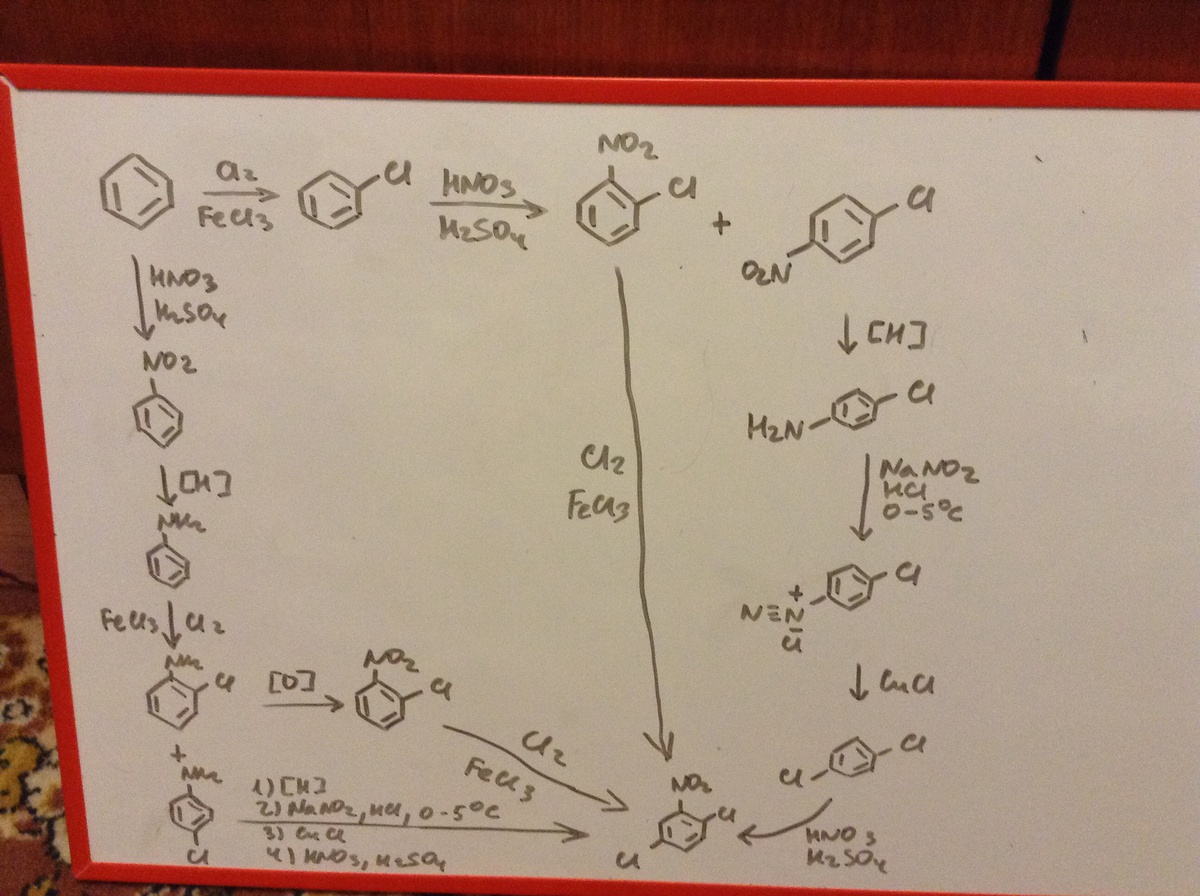 Cl2
FeCl3
Cl
HNO3
H2SO4
NO2
Cl
+
O2N
Cl
HNO3
H2SO4
NO2
[H]
NH2
FeCl3 Cl2
NH2
Cl
+
NH2
Cl
[O]
NO2
Cl
Cl2
FeCl3
1) [H]
2) NaNO2, HCl, 0-5°C
3) CuCl
4) HNO3, H2SO4
Cl2
FeCl3
[H]
H2N
Cl
NaNO2
HCl
0-5°C
Cl
N≡N+
Cl-
CuCl
Cl
Cl
HNO3
H2SO4
NO2
Cl
Cl